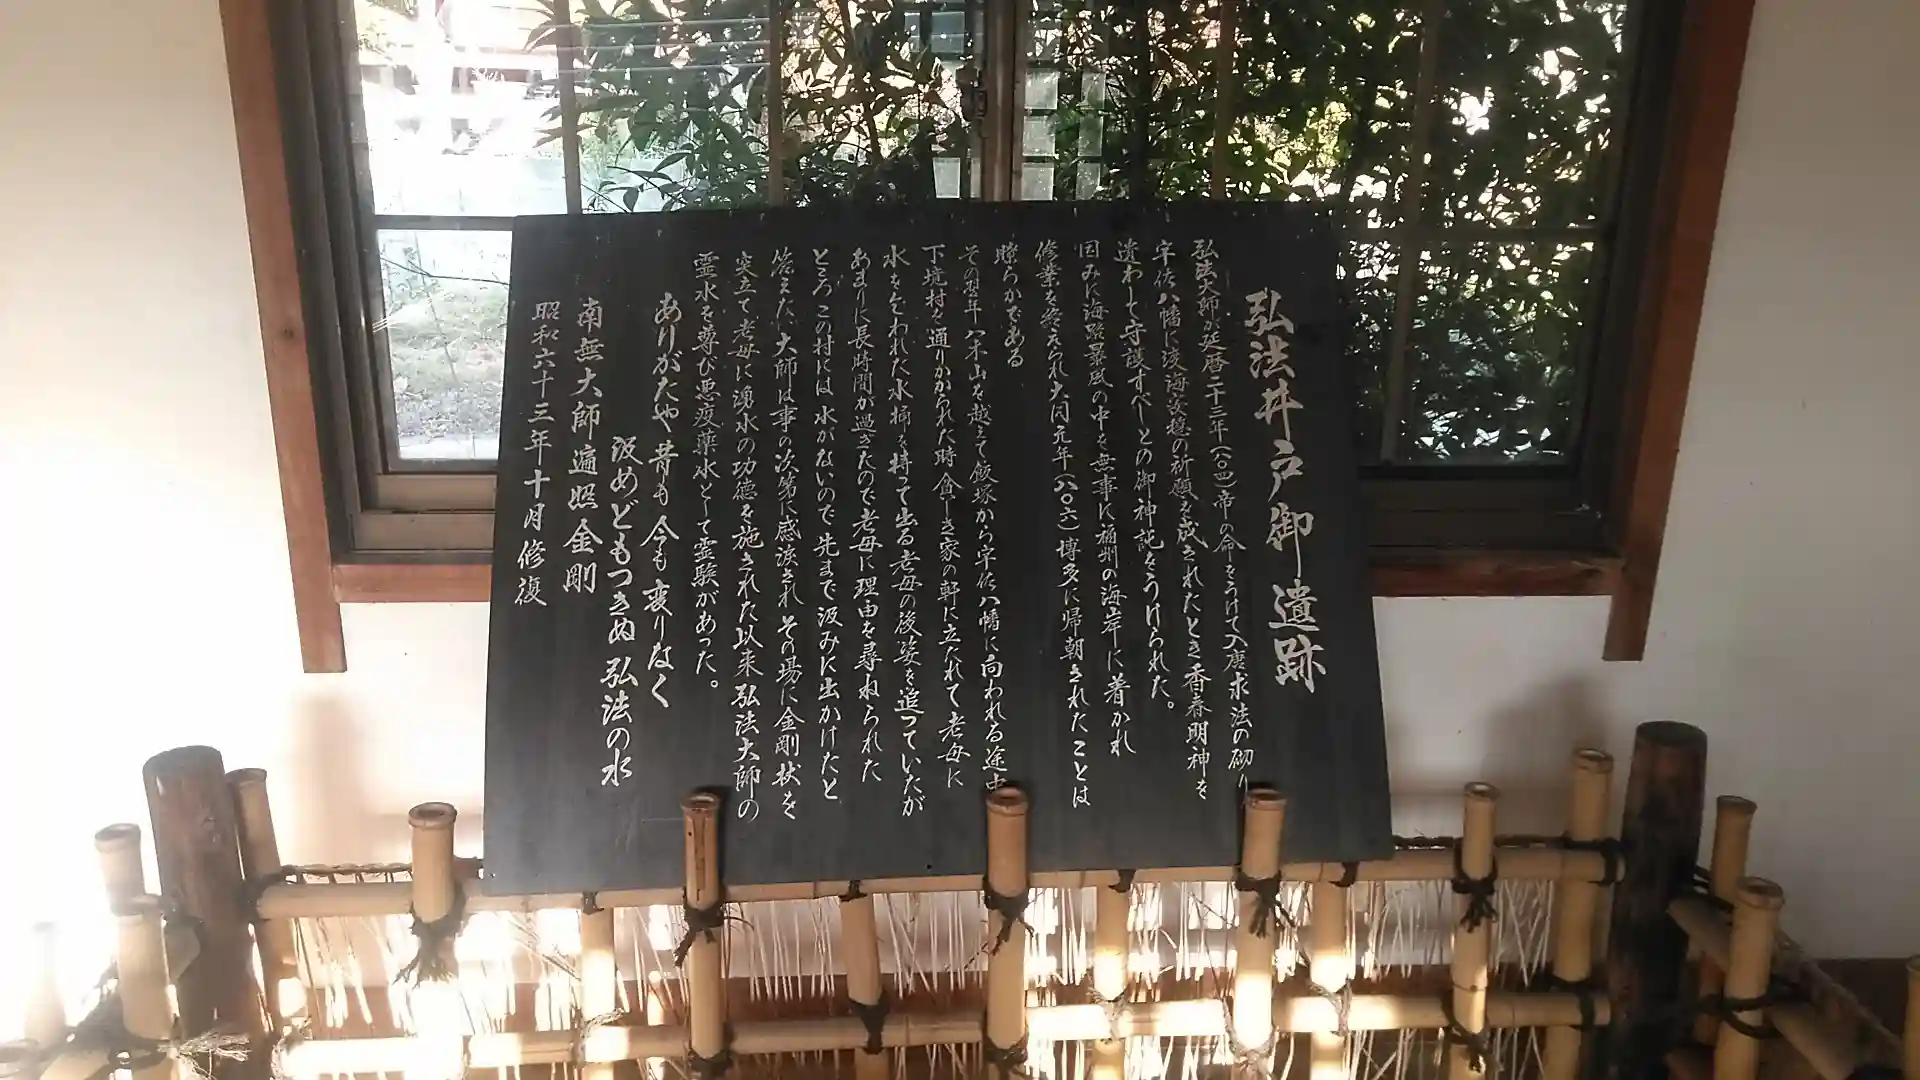 弘法井戸御遺跡
弘法大師が延暦二十三年(八〇四)帝の命をうけて入唐求法の砌り
宇佐八幡に渡海安穏の祈願を成されたとき香春明神を
遣わして守護すべしとの御神託をうけられた。
因みに海路暴風の中を無事に福州の海岸に着かれ
修業を終えられ大同元年(八〇六)博多に帰朝されたことは
瞭らかである
その翌年八木山を越えて飯塚から宇佐八幡に向われる途中
下境村を通りかかられた時貧しき家の軒に立たれて老母に
水をこわれた水桶を持って出る老母の後姿を追っていたが
あまりに長時間が過ぎたので老母に理由を尋ねられた
ところこの村には水がないので先まで汲みに出かけたと
答えた、大師は事の次第に感涙されその場に金剛杖を
突立て老母に湧水の功徳を施された以来弘法大師の
霊水を尊び悪疫薬水として霊験があった。
ありがたや昔も今も変りなく
汲めどもつきぬ弘法の水
南無大師遍照金剛
昭和六十三年十月修復